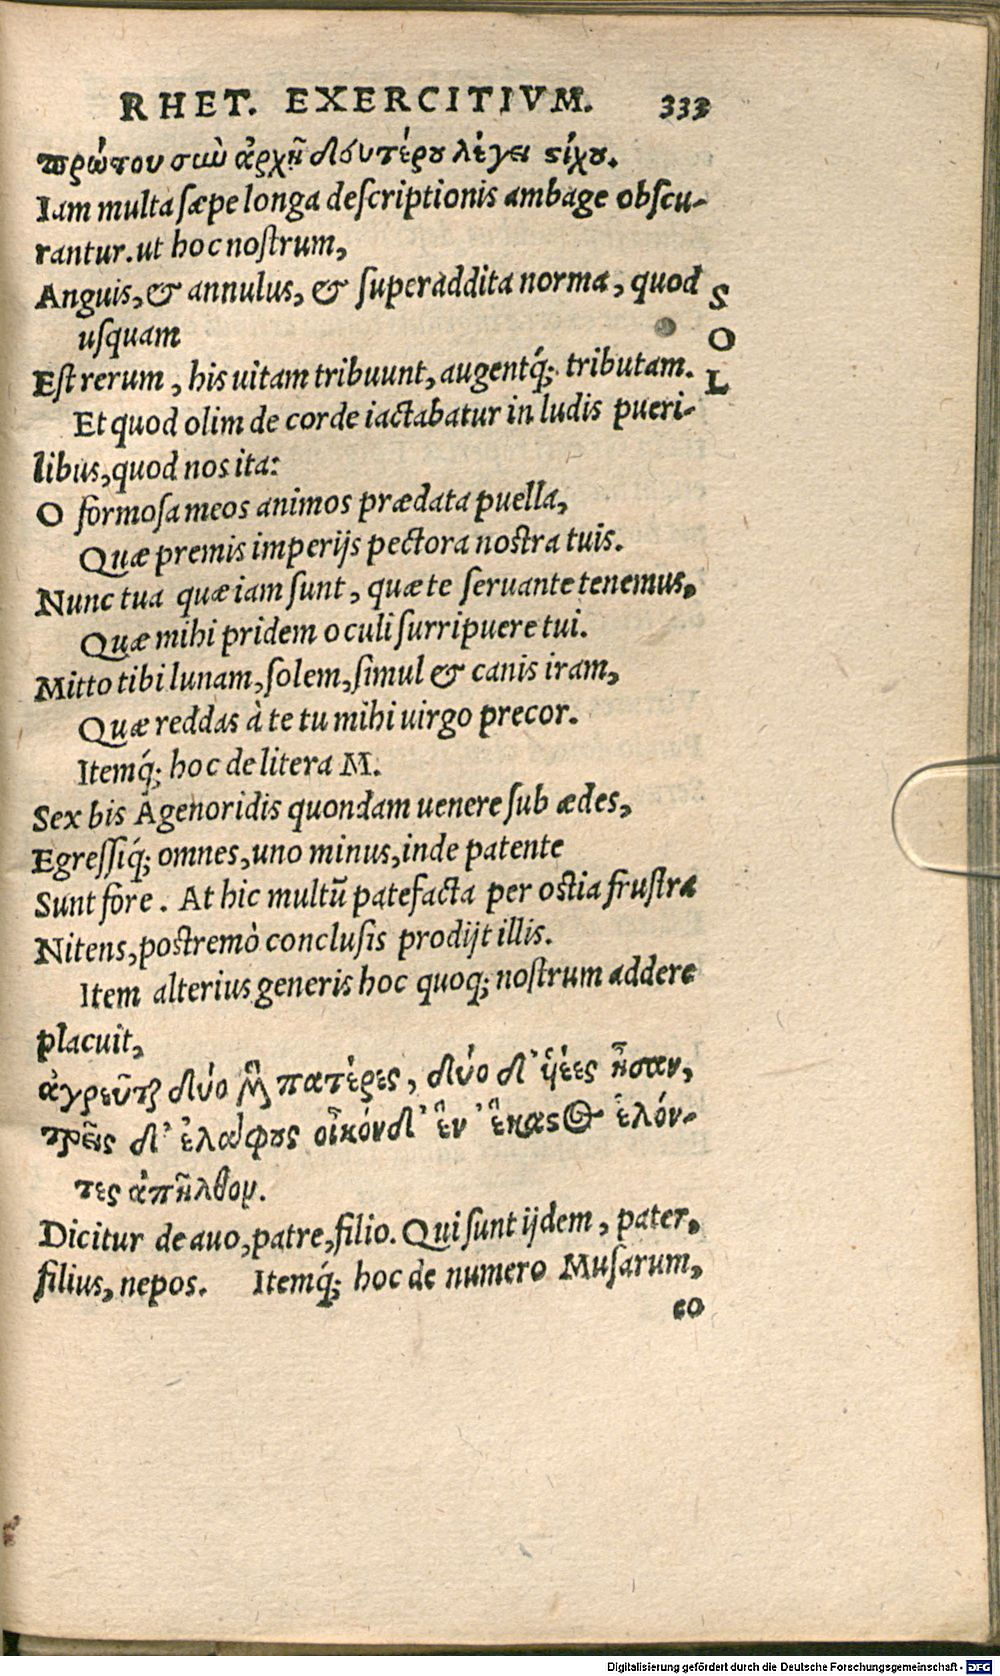 RHET. EXERCITIVM. 333
πρώτου σὺν ἀρχῇ δευτέρου λέγει στίχου.
Iam multa sæpe longa descriptionis ambage obscu-
rantur. ut hoc nostrum,
Anguis, & annulus, & superaddita norma, quod
usquam
Est rerum, his uitam tribuunt, augentq́; tributam.
S
O
L
Et quod olim de corde iactabatur in ludis pueri-
libus, quod nos ita:
O formosa meos animos prædata puella,
Quæ premis imperijs pectora nostra tuis.
Nunc tua quæ iam sunt, quæ te seruante tenemus,
Quæ mihi pridem oculi surripuere tui.
Mitto tibi lunam, solem, simul & canis iram,
Quæ reddas à te tu mihi uirgo precor.
Itemq́; hoc de litera M.
Sex bis Agenoridis quondam uenere sub ædes,
Egressiq́; omnes, uno minus, inde patente
Sunt fore. At hic multū patefacta per ostia frustra
Nitens, postremò conclusis prodijt illis.
Item alterius generis hoc quoq; nostrum addere
placuit,
ἀγρεῦται δύο μὲν πατέρες, δύο δ' ὑέες ἦσαν,
τρεῖς δ' ἐλάφους οἶκόνδ' ἓν ἕκαστος ἑλόν-
τες ἀπῆλθον.
Dicitur de auo, patre, filio. Qui sunt ijdem, pater,
filius, nepos. Itemq́; hoc de numero Musarum,
eo
Digitalisierung gefördert durch die Deutsche Forschungsgemeinschaft - DFG